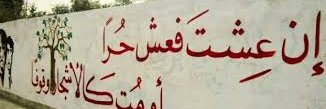 إن عشتَ فعش حُراً
أو مُت كالأشجار وقوفا